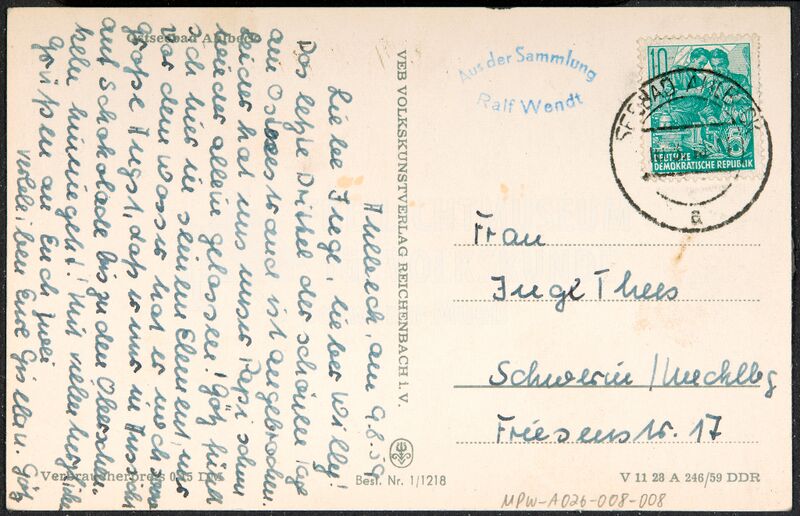 Ostseebad Ahlbeck
Ahlbeck, am 9.8.59
Liebe Inge, lieber Willy!
Das letzte Drittel der schönen Tage
am Ostseestrand ist angebrochen.
Leider hat uns unser Papi schon
wieder allein gelassen! Götz fühlt
sich hier in seinem Element, nur
vor dem Wasser hat er noch
große Angst, daß er nur in Aussicht
auf Schokolade bis zu den Oberschen-
keln hineingeht! Mit vielen herzlichen
Grüßen an Euch zwei
verbleiben Eure Gisela u. Götz
Verbraucherpreis 0,15 DM
VEB VOLKSKUNSTVERLAG REICHENBACH I. V.
Best. Nr. 1/1218
Aus der Sammlung
Ralf Wendt
10
5
DEUTSCHE
DEMOKRATISCHE REPUBLIK
SEEBAD AHLBECK
a
Frau
Inge Thees
Schwerin/Mecklbg
Friesenstr. 17
V 11 28 A 246/59 DDR
MPW-A026-008-008